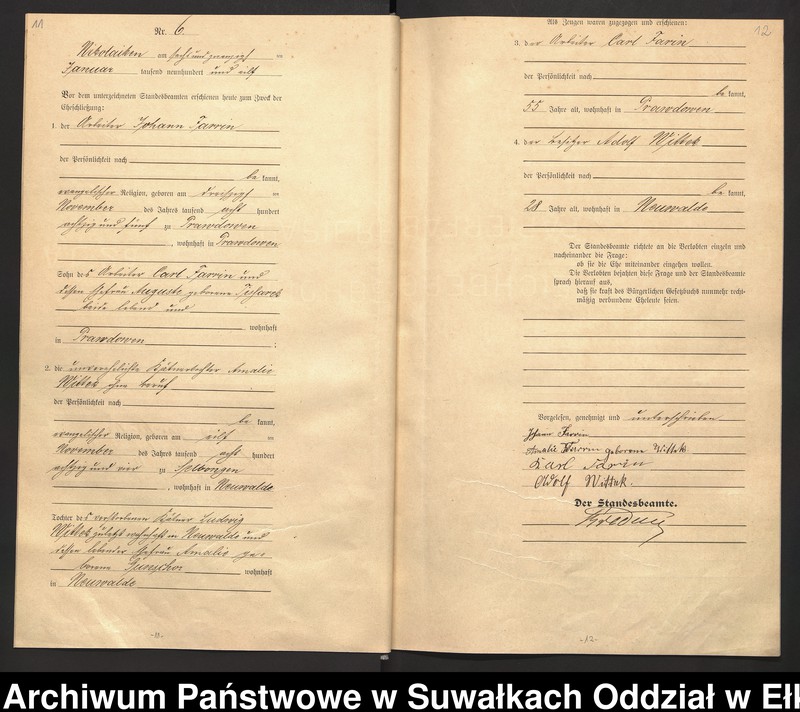 11
Nr. 6
Nikolaiken am sechsundzwanzigsten
Januar tausend neunhundert und elf
Vor dem unterzeichneten Standesbeamten erschienen heute zum Zweck der
Eheschließung:
1. der Arbeiter Johann Farrin
der Persönlichkeit nach
be kannt,
evangelischer Religion, geboren am dreißigsten
November des Jahres tausend acht hundert
achtzig und fünf zu Prawdowen
, wohnhaft in Prawdowen
Sohn des Arbeiter Carl Farrin und
dessen Ehefrau Auguste geborene
beide lebend und
wohnhaft
in Prawdowen ;
2. die unverehelichte Kätnertochter Amalie
Wittek ohne Beruf
der Persönlichkeit nach
be kannt,
evangelischer Religion, geboren am elf
November des Jahres tausend acht hundert
achtzig und vier zu Selbongen
, wohnhaft in Neuwalde
Tochter des verstorbenen Kätner Ludwig
Wittek zuletzt wohnhaft in Neuwalde und
dessen lebender Ehefrau Amalie ge-
borene
wohnhaft
in Neuwalde
-11-
12
Als Zeugen waren zugezogen und erschienen:
3. der Arbeiter Carl Farin
der Persönlichkeit nach
be kannt,
55 Jahre alt, wohnhaft in Prawdowen
4. der Besitzer Adolf Wittek
der Persönlichkeit nach
be kannt,
28 Jahre alt, wohnhaft in Neuwalde
Der Standesbeamte richtete an die Verlobten einzeln und
nacheinander die Frage:
ob sie die Ehe miteinander eingehen wollen.
Die Verlobten bejahten diese Frage und der Standesbeamte
sprach hierauf aus,
daß sie kraft des Bürgerlichen Gesetzbuchs nunmehr recht-
mäßig verbundene Eheleute seien.
Vorgelesen, genehmigt und unterschrieben
Johann Farrin
Amalie Farrin geborene Wittek
Karl Farin
Adolf Wittek.
Der Standesbeamte.
-12-
Archiwum Państwowe w Suwałkach Oddział w Ełk